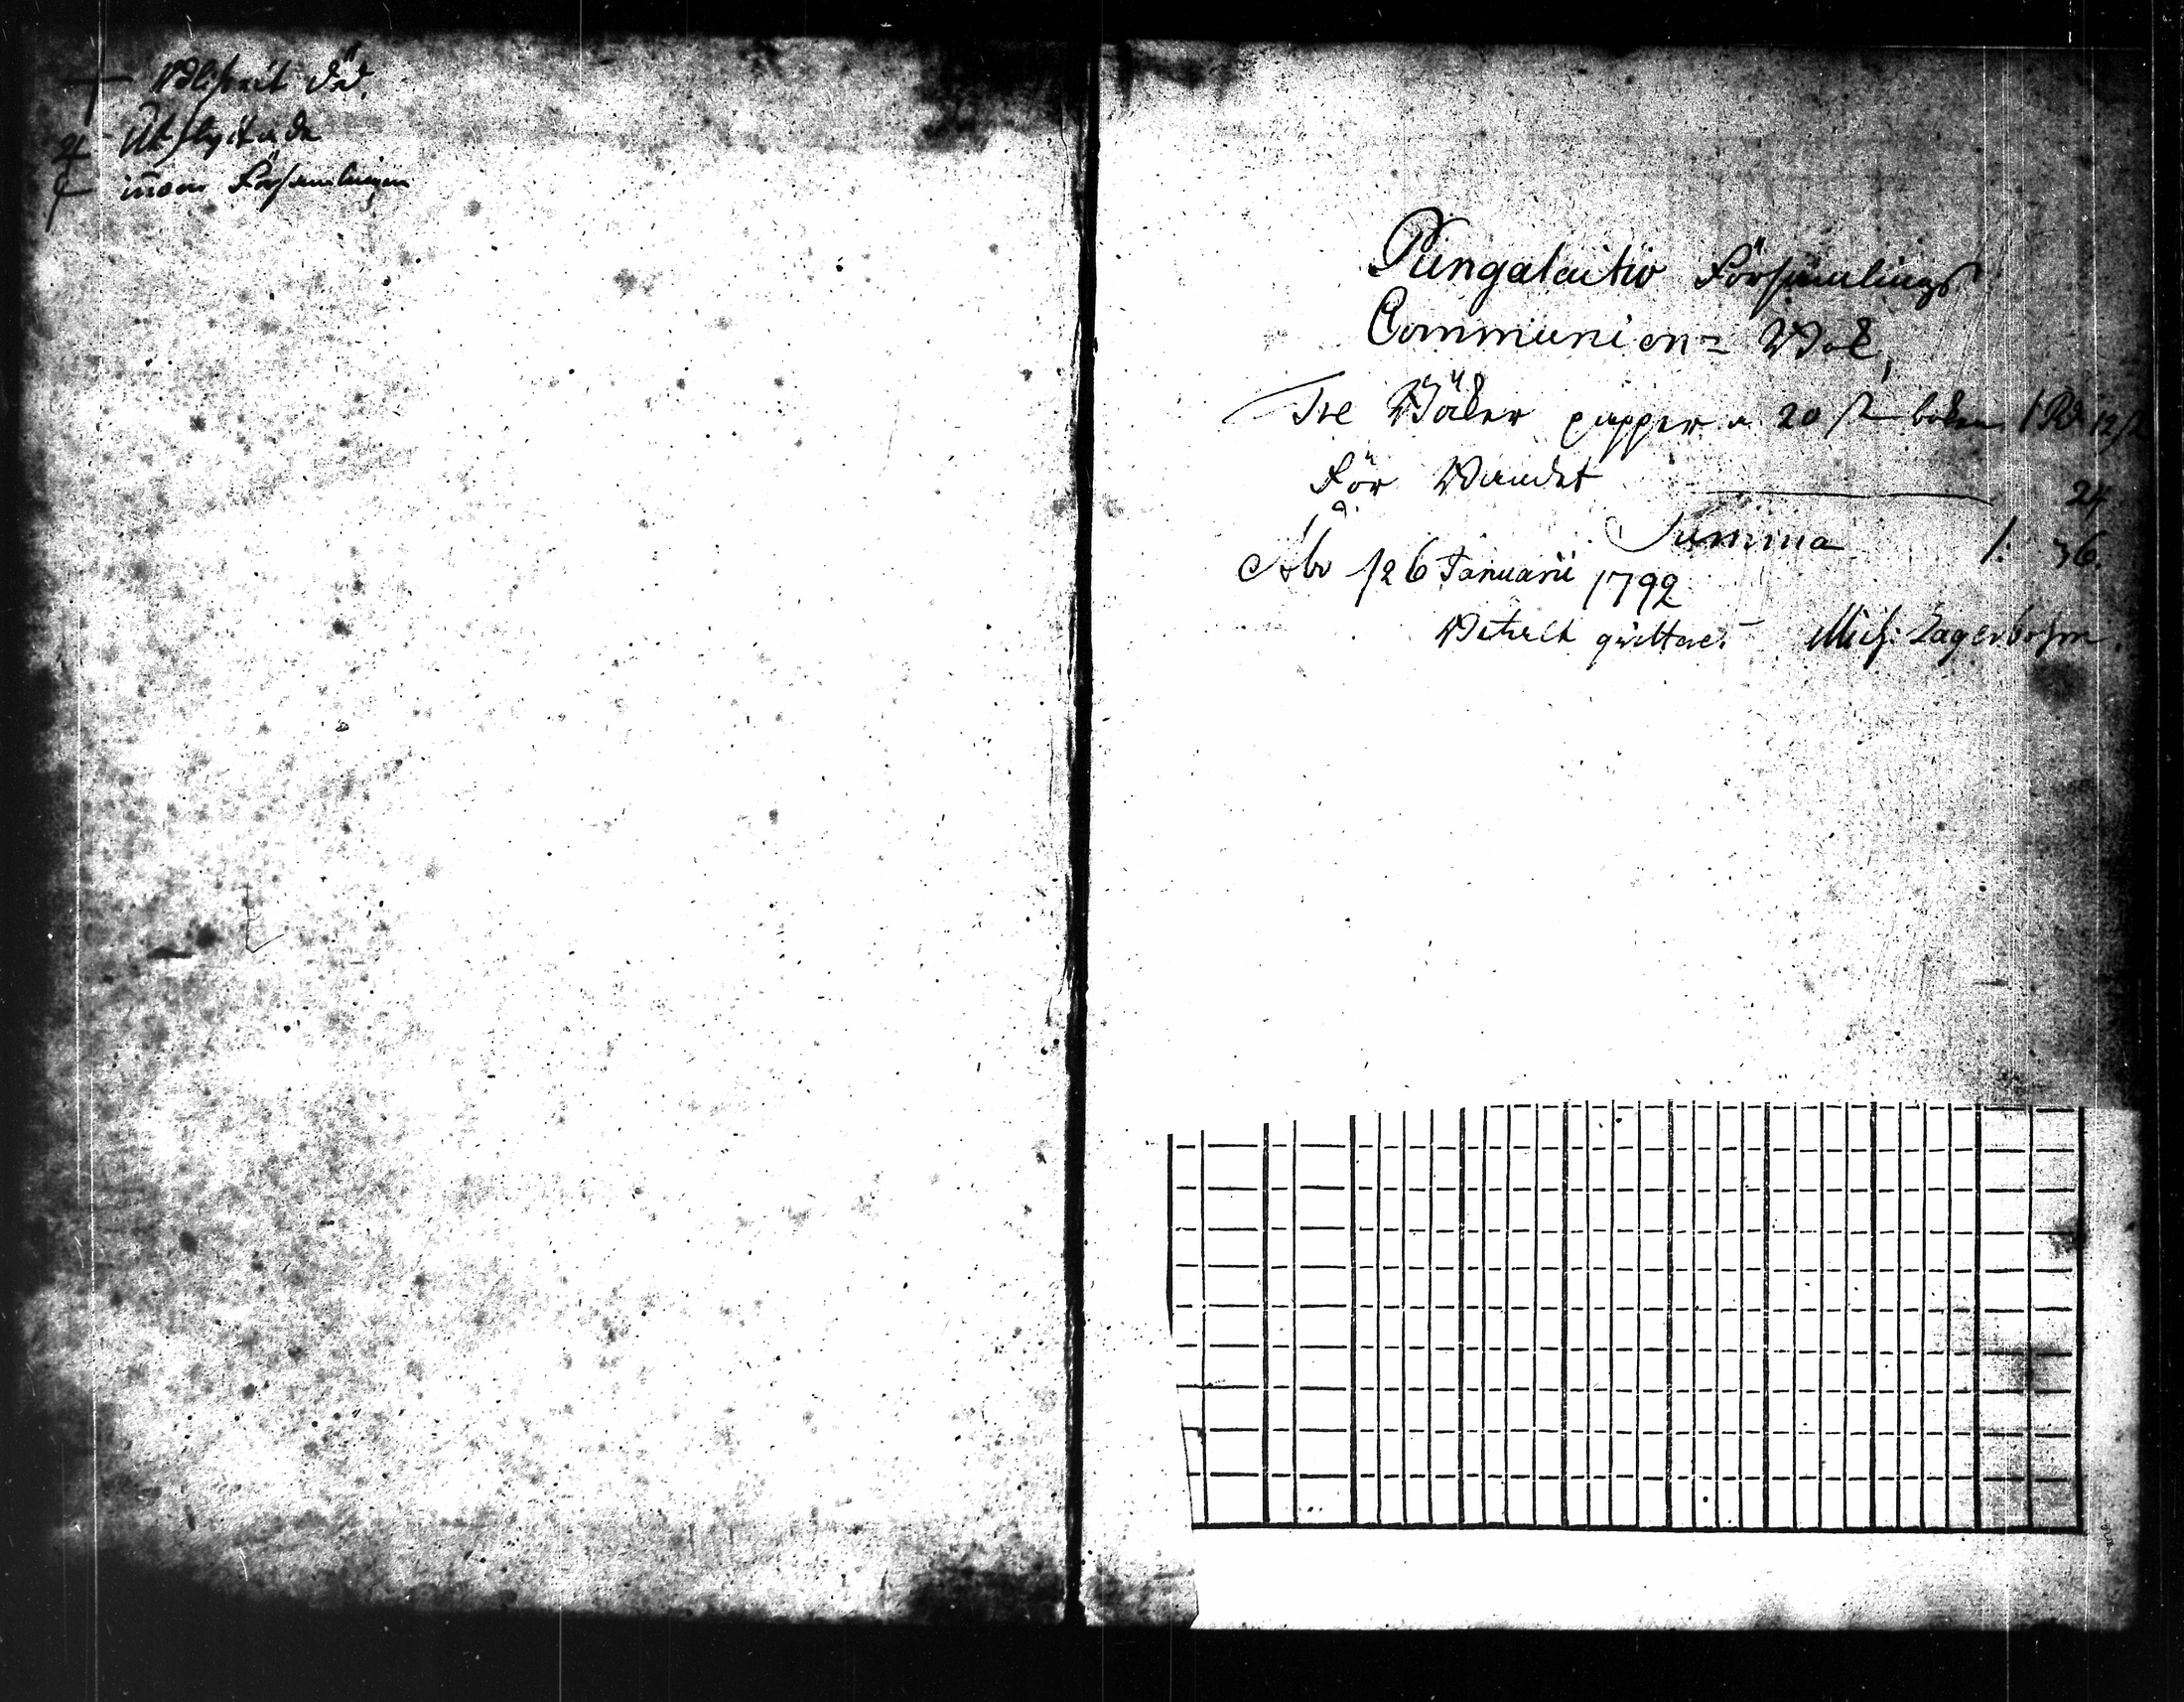 död.
Utflyttade
innom Församlingen
Pungalaitio Församlings
Communion= Bok,
Tre Böker papper a 20 s boken 1 Rd 12
För Bandet 24
Summa 1. 36.
Åbo 126 Januarii 1792
Betalt qvitteras. Mich: Lagerbohm.